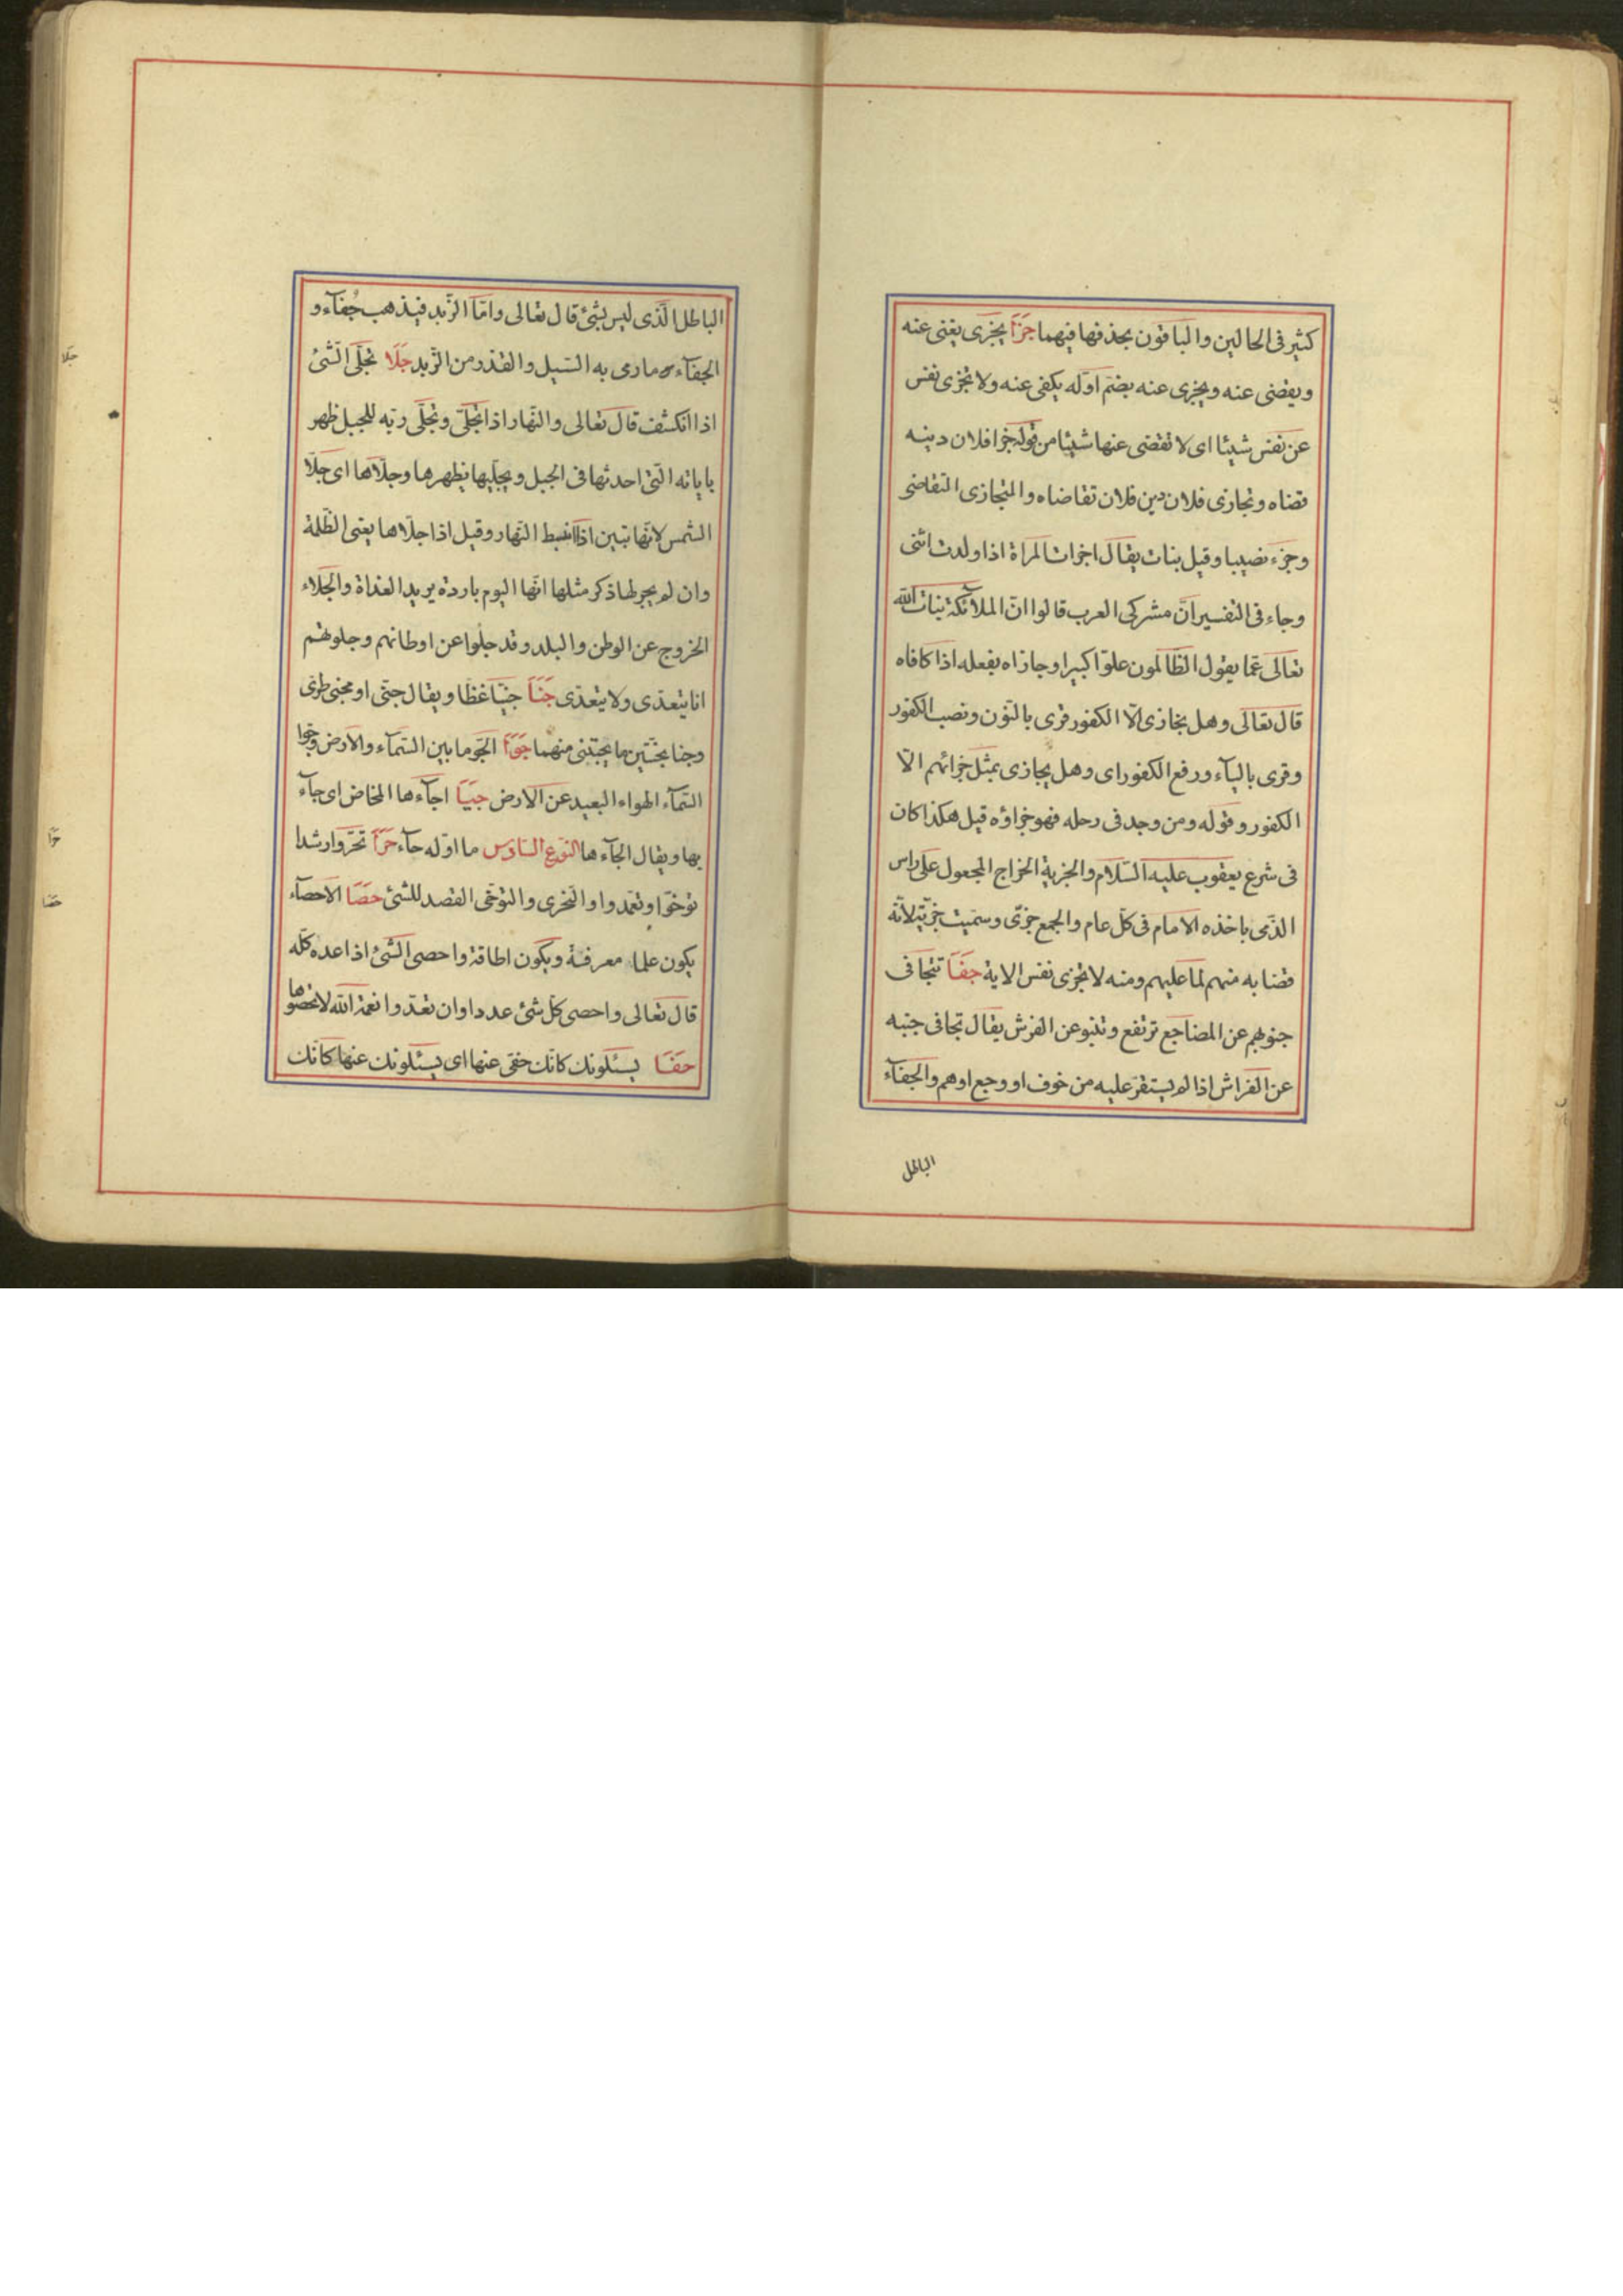 كثير فى الحالين والباقون بحذفها فيهما جَزَا يجزى يغنى عنه
ويقضى عنه ويجزى عنه بضم اوّله يكفى عنه ولا تجزى نفس
عن نفس شيئا اى لا تقضى عنها شيئا من قوله جزا فلان دينه
قضاه وتجازى فلان دين فلان تقاضاه والمتجازى التقاضى
وجزء نصيبا وقيل بنات يقال اجزات المراة اذا ولدت انثى
وجاء فى التفسير انّ مشركى العرب قالوا انّ الملآئكة بنات الله
تعالى عمّا يقول الظالمون علوّا كبيرا وجازاه بفعله اذا كافاه
قال تعالى وهل نجازى الّا الكفور قرى بالنون ونصب الكفور
وقرى باليآء ورفع الكفور اى وهل يجازى بمثل جزائهم الّا
الكفور وقوله ومن وجد فى رحله فهو جزاؤه قيل هكذا كان
فى شرع يعقوب عليه السّلام والجزية الخراج المجعول على راس
الذّمى ياخذه الامام فى كلّ عام والجمع جزى وسميت جزية لانّه
قضا به منهم لما عليهم ومنه لا تجزى نفس الاية جَفَا تتجافى
جنوبهم عن المضاجع ترتفع وتنبو عن الفرش يقال تجافى جنبه
عن الفراش اذا لم يستقرّ عليه من خوف او وجع او هم والجفآء
الباطل
الباطل الّذى ليس بشئ قال تعالى وامّا الزّبد فيذهب جُفآء و
الجفآء ما رمى به السّيل والقذر من الزّبد جَلَا تجلّى الشّئ
اذا انكشف قال تعالى والنّهار اذا تجلّى وتجلّى ربّه للجبل ظهر
باياته الّتى احدثها فى الجبل ويجلّيها يظهرها وجلّاها اى جلّا
الشمس لانّها تبين اذا انبسط النّهار وقيل اذا جلّاها يعنى الظّلمة
وان لم يجر لها ذكر مثلها انّها اليوم باردة يريد الغداة والجلاء
الخروج عن الوطن والبلد وقد جلوا عن اوطانهم وجلوتهم
انا يتعدّى ولا يتعدّى جَنَا جنيّا غضّا ويقال جنى او مجنى طرىّ
وجنا الجنّتين ما يجتنى منهما جَوَا الجّو ما بين السّمآء والارض وجوا
السّمآء الهواء البعيد عن الارض جَيَا اجآءها المخاض اى جآء
بها ويقال الجآءها النوع السّادس ما اوّله حآء حَرَا تحرّوا رشدا
توخّوا وتعمدوا والتحرى والتوخى القصد للشئ حَصَا الاحصآء
يكون علما معرفة ويكون اطاقة واحصى الشئ اذا عده كلّه
قال تعالى واحصى كلّ شئ عددا وان تعدّوا نعمة الله لا تحصوها
حَفَا يسئلونك كانّك حفى عنها اى يسئلونك عنها كانّك
جلا
حرا
حصا